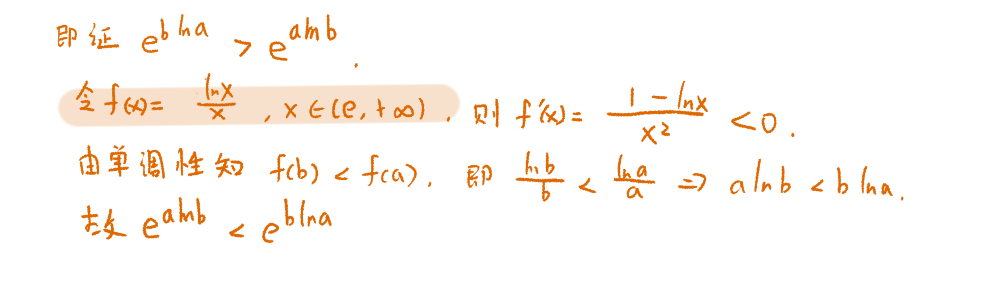 即证 e^{b ln a} > e^{a ln b}.
令 f(x)= \frac{ln x}{x}, x ∈ (e, +∞). 则 f'(x)= \frac{1 - ln x}{x^2} < 0.
由单调性知 f(b) < f(a). 即 \frac{ln b}{b} < \frac{ln a}{a} ⇒ a ln b < b ln a.
故 e^{a ln b} < e^{b ln a}